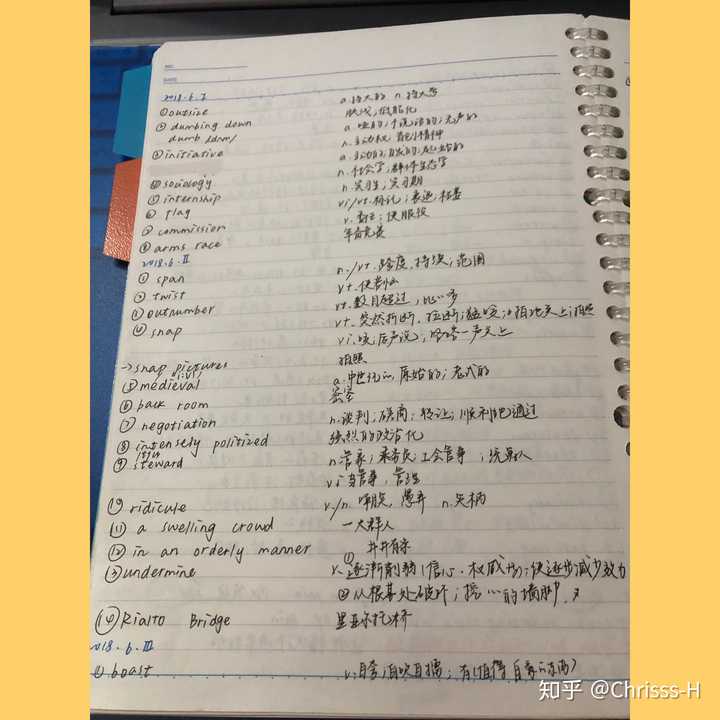 2018.6.I
①outsize a.特大的 n.特大号
②dumbing down 肤浅;低能化
dumb /dʌm/ a.哑的;不说话的;无声的
③initiative n.主动权;首创精神
a.主动的;自发的;起始的
④sociology n.社会学;群体生态学
⑤internship n.实习生;实习期
⑥flag vi/vt.标记;衰退;枯萎
⑦commission v.委任;使服役
⑧arms race 军备竞赛
2018.6.II
①span n./vt.跨度,持续;范围
②twist vt.使弯曲
③outnumber vt.数目超过,比…多
④snap vt.突然折断,拉断;猛咬;啪地关上;拍照
vi.咬;厉声说;咯咯一声关上
→snap pictures 拍照
⑤medieval a.中世纪的,原始的;老式的
⑥back room 密室
⑦negotiation n.谈判;磋商;转让;顺利地通过
⑧intensely politized 强烈的政治化
⑨steward n.管家;乘务员;工会管事;统筹人
vi.当管事,管理
⑩ridicule v./n.嘲笑,愚弄 n.笑柄
⑪a swelling crowd 一大群人
⑫in an orderly manner 井井有条
⑬undermine v.①逐渐削弱(信心.权威等);使逐步减少效力
②从根基处破坏;挖…的墙脚
⑭Rialto Bridge 里亚尔托桥
2018.6.III
①boast v.自夸;自吹自擂;有(值得自豪的东西)
知乎 @Chrisss-H